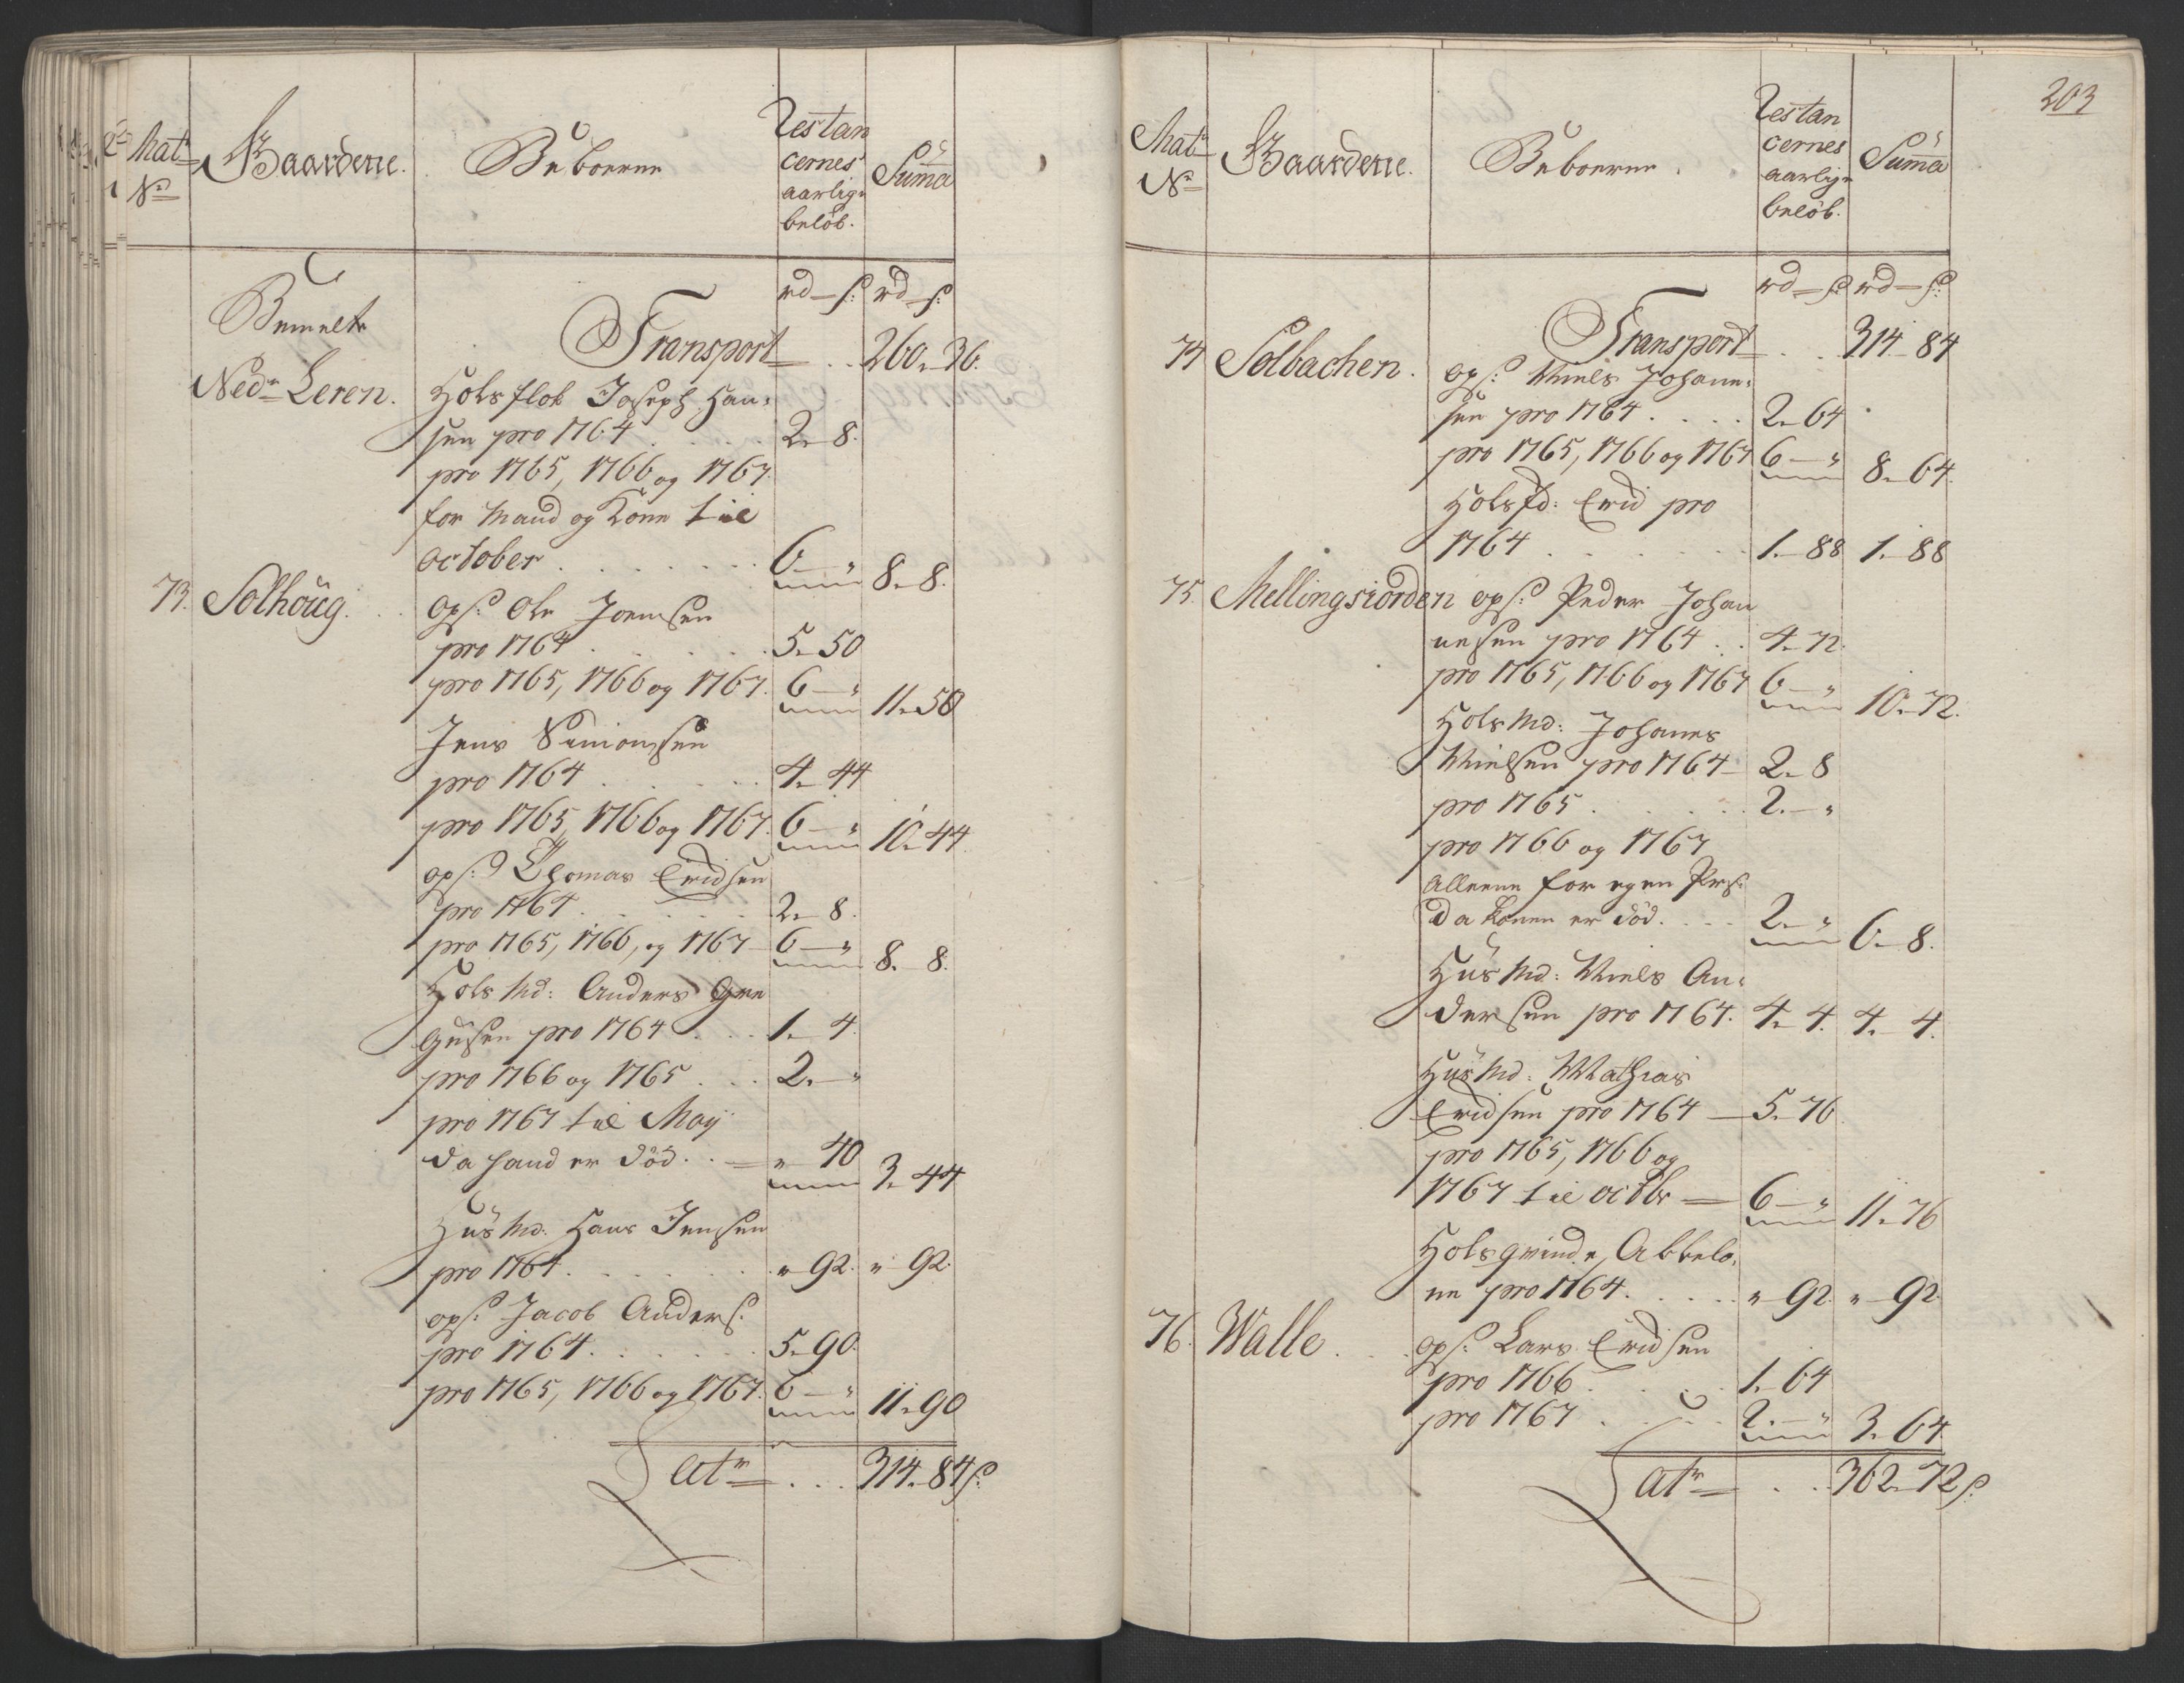 Mat:
No
Gaardene.
Beboerne
Restan
cernes
aarlige
beløb.
Suma
rd – s: rd – s:
Bemelte
Transport . . 260 „ 36.
Nedre Leren.
Holsflok Joseph Han:
sen pro 1764 . . . . 2 „ 8.
pro 1765, 1766 og 1767
for Mand og Kone til
October . . . . . . . 6 – „ 8 „ 8.
73. Solhoüg. . .
Ops: Ole Joensen
pro 1764 . . . . . . 5 „ 50
pro 1765, 1766 og 1767. 6 – „ 11 „ 50
Jens Simonsen
pro 1764 . . . . . 4 „ 44
pro 1765, 1766 og 1767. 6 – „ 10 „ 44
ops: Thomas Ericksen
pro 1764 . . . . . . 2 „ 8.
pro 1765, 1766, og 1767 – 6 – „ 8. – 8.
Hols Md: Anders Gre
gusen pro 1764 . . . 1 „ 4.
pro 1766 og 1765 . . . 2. – „
pro 1767 til Maij
da hand er død. . . – „ 40 3 „ 44
Hüs Md. Hans Jensen
pro 1764. . . . . . . „ 92. „ 92.
ops: Jacob Anders:
pro 1764. . . . . . . 5 „ 90.
pro 1765, 1766 og 1767. 6 – „ 11 „ 90
Latr . . . 314 „ 84 s:
203
Mat:
No
Gaardene.
Beboerne.
Restan
cernes
aarlige
beløb.
Suma
rd – s: rd – s:
Transport . . 314 – 84
74 Solbachen.
Ops: Niels Johane:
sen pro 1764 . . . . 2 „ 64
pro 1765, 1766 og 1767 6 – „ 8 „ 64.
Hols Ed: Erick pro
1764 . . . . . . . 1. – 88 1. – 88
75. Mellingsiorden ops: Peder Johan
nesen pro 1764 . . 4 „ 72.
pro 1765, 1766 og 1767 6 – „ 10 „ 72.
Hols Md: Johanes
Nielsen pro 1764 – 2 „ 8
pro 1765 . . . . . . 2. – „
pro 1766 og 1767
alleene for egen Prs:
da Konen er død. . . . 2. – „ 6. – 8.
Hüs Md: Niels An:
dersen pro 1764. 4 „ 4. 4. – 4.
Hüs Md: Mathias
Ericksen pro 1764 – 5 „ 76.
pro 1765, 1766 og
1767 til octbr – 6 – „ 11 „ 76
Holsqvinde, Abbelo:
ne pro 1764. . . . . „ 92. „ – 92.
76. Walle . . .
ops: Lars Ericksen
pro 1766 . . . . 1 „ 64
pro 1767 . . . . . 2. – „ 3 „ 64
Latr . . . 362 „ 72 s: